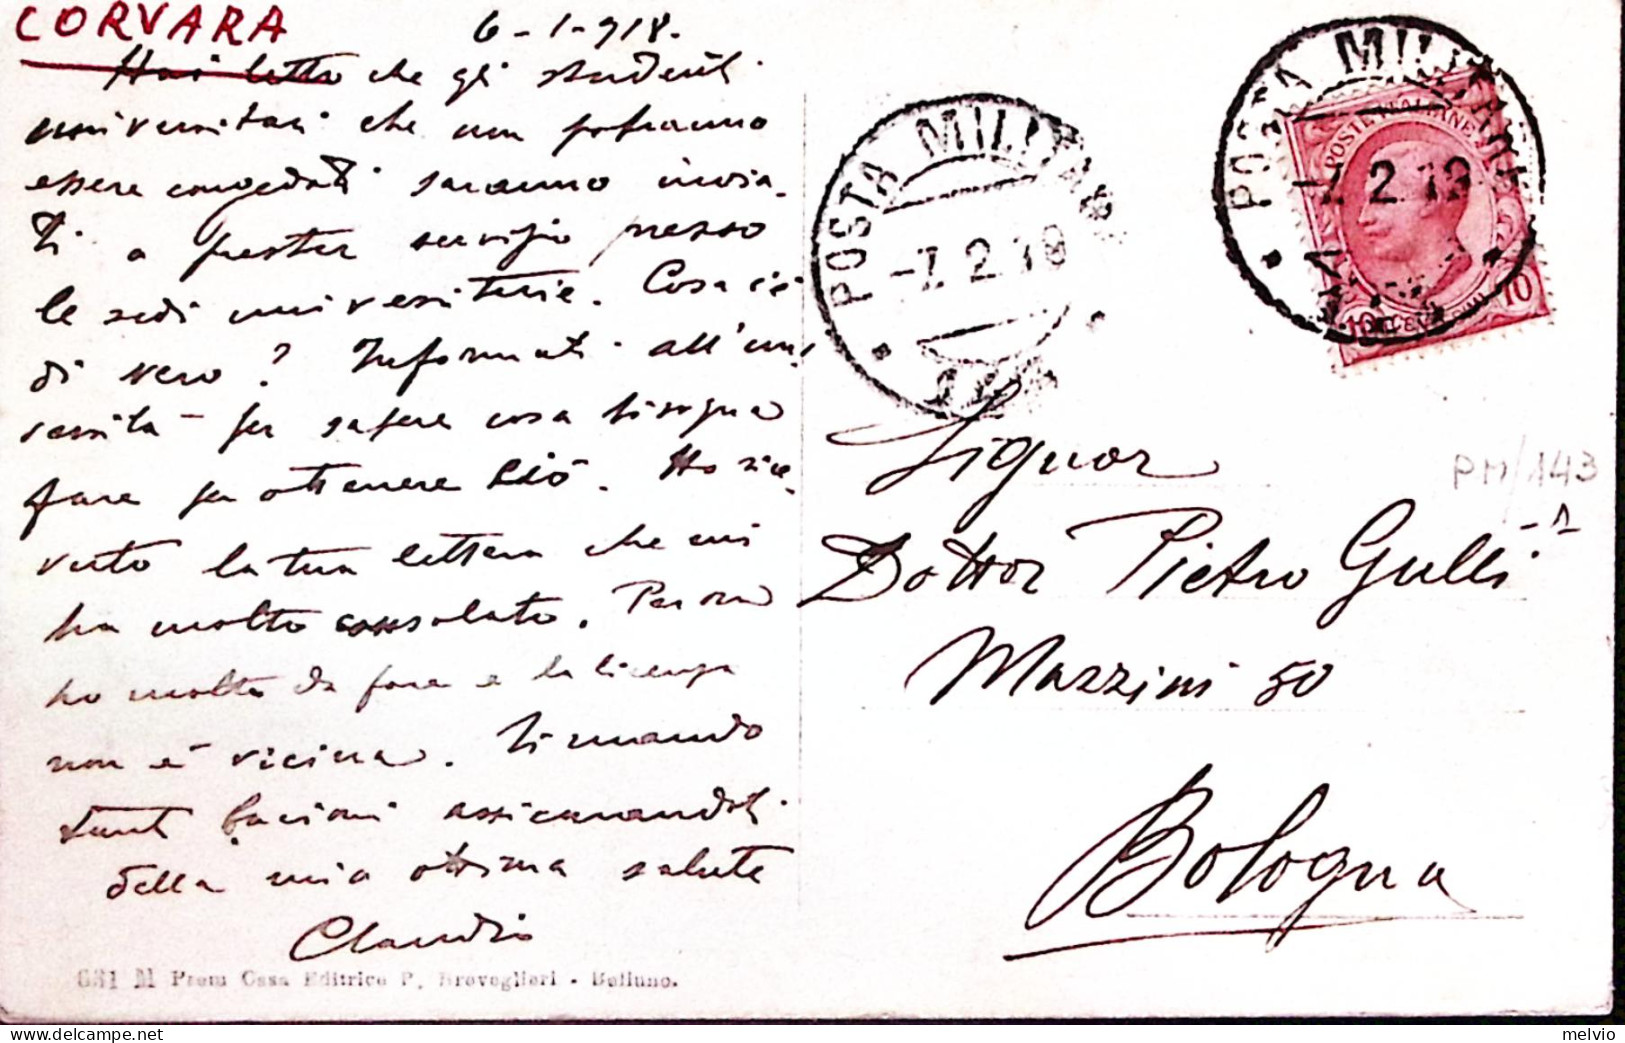 CORVARA
6-1-918.
Hai letto che gli studenti
universitari che non potranno
essere congedati saranno invia-
ti a prestar servizio presso
le sedi universitarie. Cosa c'è
di vero? Informati all'uni
versità per sapere cosa bisogna
fare per ottenere ciò. Ho rice-
vuto la tua lettera che mi
ha molto consolato. Per ora
ho molto da fare e la licenza
non è vicina. Ti mando
tanti bacioni assicurandoti
della mia ottima salute
Claudio
631 M Prem Casa Editrice P. Breveglieri - Belluno.
POSTA MILITARE
-7.2.18
POSTA MILITARE
-7.2.19
POSTE ITALIANE
10 CENTESIMI 10
PM/143
-1
Signor
Dottor Pietro Gulli
Mazzini 50
Bologna
melvio